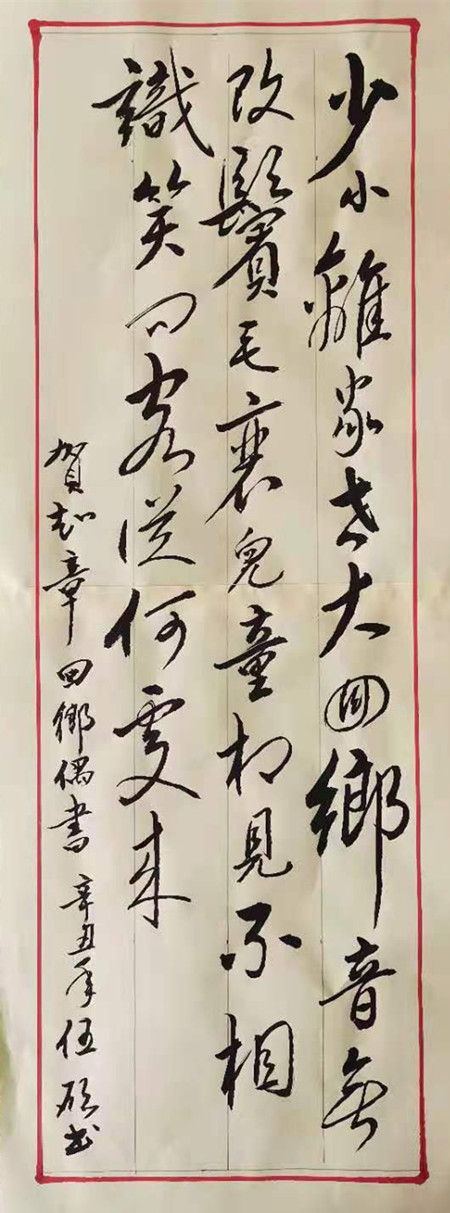 少小離家老大回鄉音無
改鬢毛衰兒童相見不相
識笑问客從何處来
賀知章回鄉偶書 辛丑年伍硕书